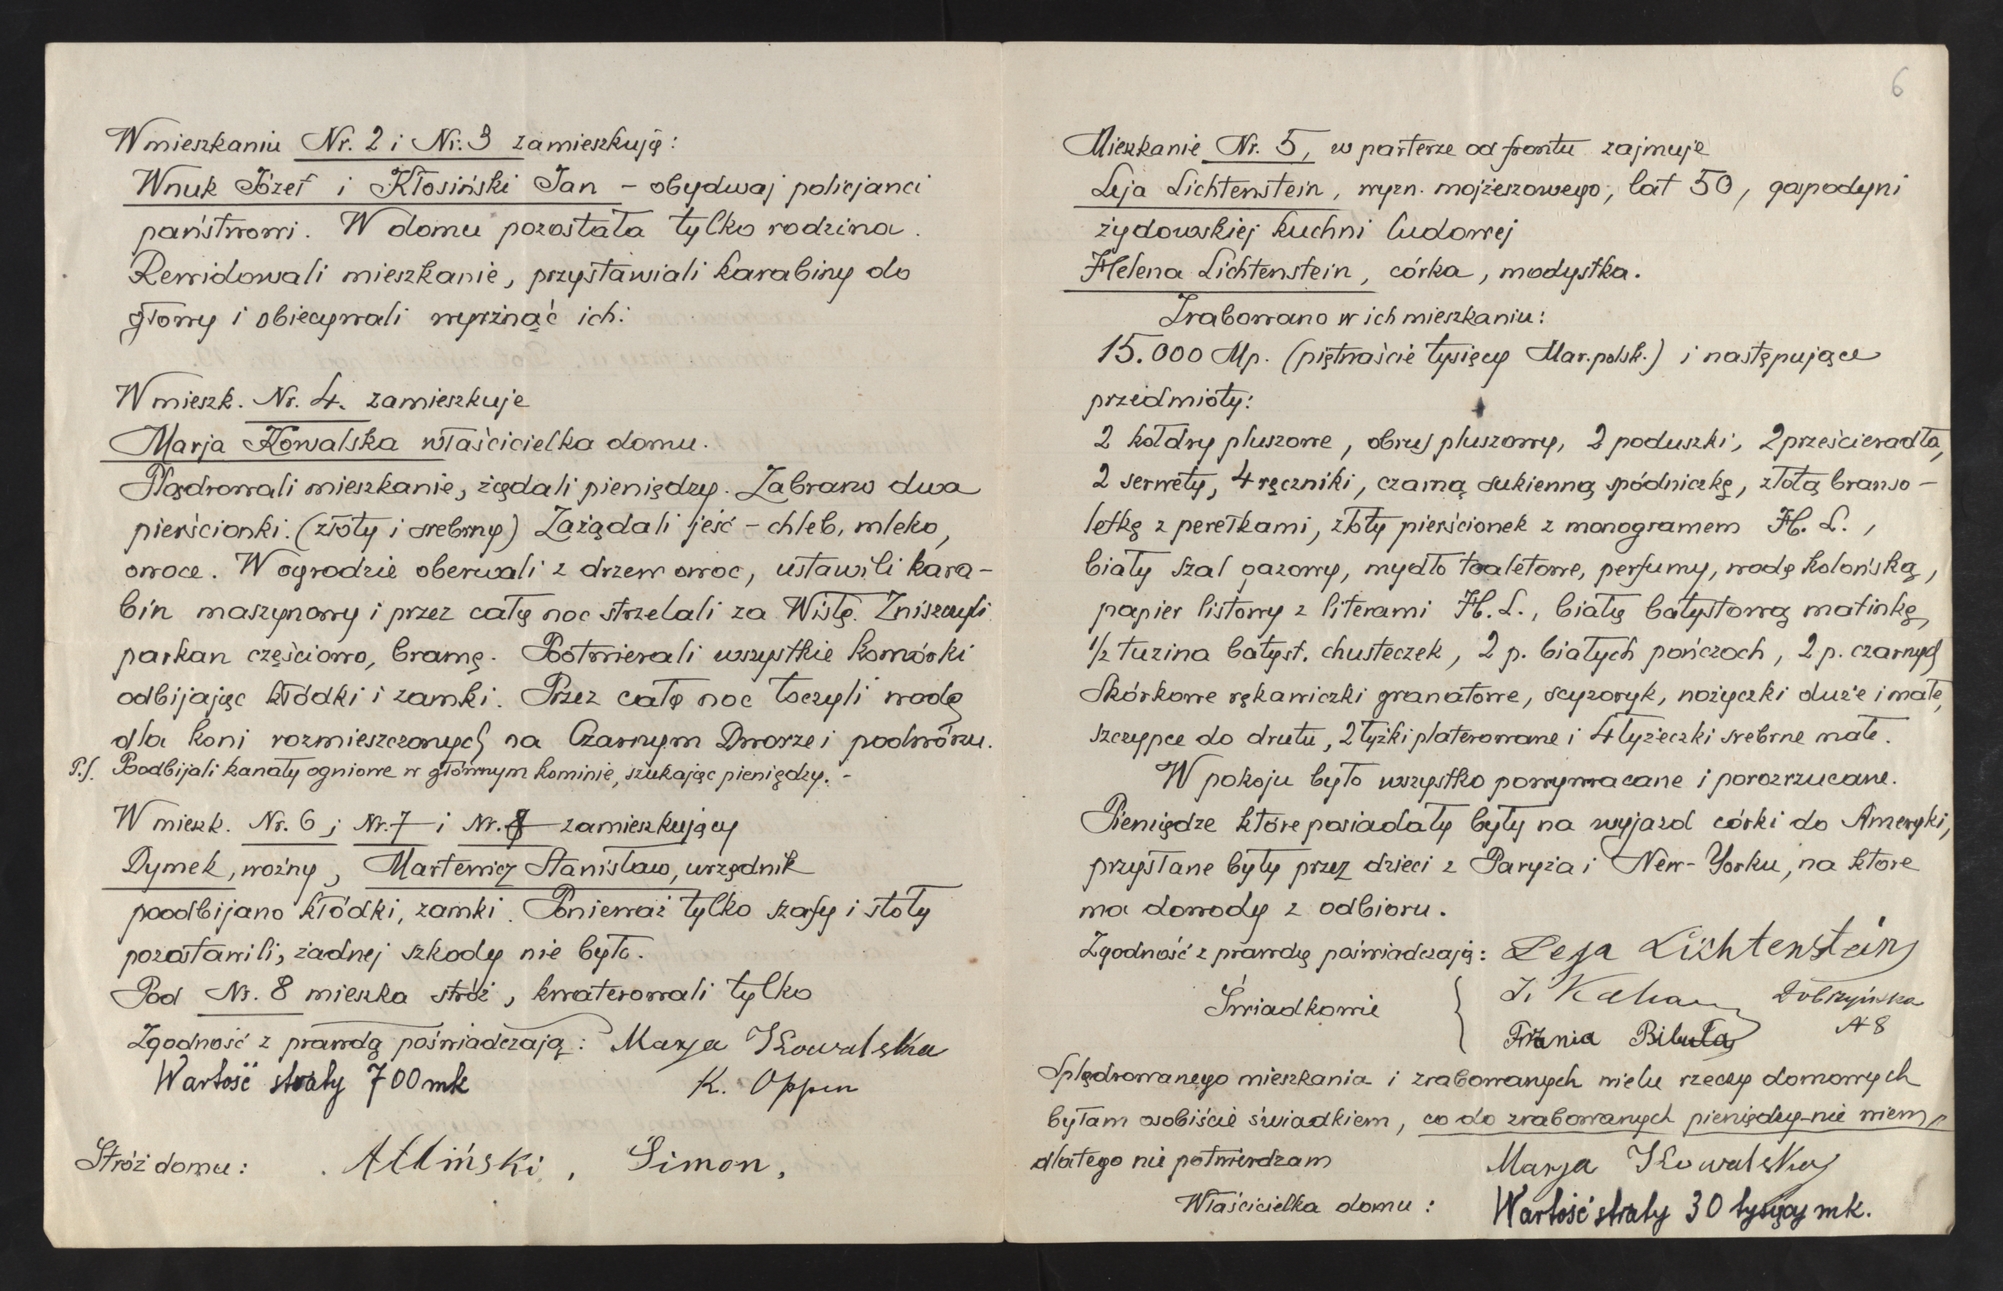 W mieszkaniu Nr. 2 i Nr. 3 zamieszkują:
Wnuk Józef i Kłosiński Jan – obydwaj policjanci
państwowi. W domu pozostała tylko rodzina.
Rewidowali mieszkanie, przystawiali karabiny do
głowy i obiecywali wyrżnąć ich.
W mieszk. Nr. 4. zamieszkuje
Marja Kowalska właścicielka domu.
Plądrowali mieszkanie, żądali pieniędzy. Zabrano dwa
pierścionki. (złoty i srebrny) Zażądali jeść – chleb, mleko,
owoce. W ogrodzie oberwali z drzew owoc, ustawili kara-
bin maszynowy i przez całą noc strzelali za Wisłę. Zniszczyli
parkan częściowo, bramę. Pootwierali wszystkie komórki
odbijając kłódki i zamki. Przez całą noc toczyli wodę
dla koni rozmieszczonych na Czarnym Dworze i podwórzu.
P.S. Poodbijali kanały ogniowe w głównym kominie, szukając pieniędzy. –
W mieszk. Nr. 6 i Nr. 7 i Nr. 8 zamieszkujący
Dymek, woźny, Martewicz Stanisław, urzędnik
poodbijano kłódki, zamki. Ponieważ tylko szafy i stoły
pozostawili, żadnej szkody nie było.
Pod Nr. 8 mieszka stróż, kwaterowali tylko
Zgodność z prawdą poświadczają: Marja Kowalska
Wartość straty 700 mk K. Oppen
Stróż domu: Simon,
6
Mieszkanie Nr. 5, w parterze od frontu zajmuje
Leja Lichtenstein, wyzn. mojżeszowego, lat 50, gospodyni
żydowskiej kuchni ludowej
Helena Lichtenstein, córka, modystka.
Zrabowano w ich mieszkaniu:
15.000 Mp. (piętnaście tysięcy Mar. polsk.) i następujące
przedmioty:
2 kołdry pluszowe, obrus pluszowy, 2 poduszki, 2 prześcieradła,
2 serwety, 4 ręczniki, czarną sukienną spódniczkę, złotą branso-
letkę z perełkami, złoty pierścionek z monogramem H. L.,
biały szal gazowy, mydło toaletowe, perfumy, wodę kolońską,
papier listowy z literami H. L., białą batystową matinkę,
1/2 tuzina batyst. chusteczek, 2 p. białych pończoch, 2 p. czarnych
skórkowe rękawiczki granatowe, scyzoryk, nożyczki duże i małe,
szczypce do drutu, 2 łyżki platerowane i 4 łyżeczki srebrne małe.
W pokoju było wszystko powywracane i porozrzucane.
Pieniądze które posiadały były na wyjazd córki do Ameryki,
przysłane były przez dzieci z Paryża i New-Yorku, na które
ma dowody z odbioru.
Zgodność z prawdą poświadczają: Leja Lichtenstein
Świadkowie J. Kahan Dobrzyńska
Frania Bibuła № 8
Splądrowanego mieszkania i zrabowanych wielu rzeczy domowych
byłam osobiście świadkiem, co do zrabowanych pieniędzy – nie wiem,
dlatego nie potwierdzam Marja Kowalska
Właścicielka domu: Wartość straty 30 tysięcy mk.